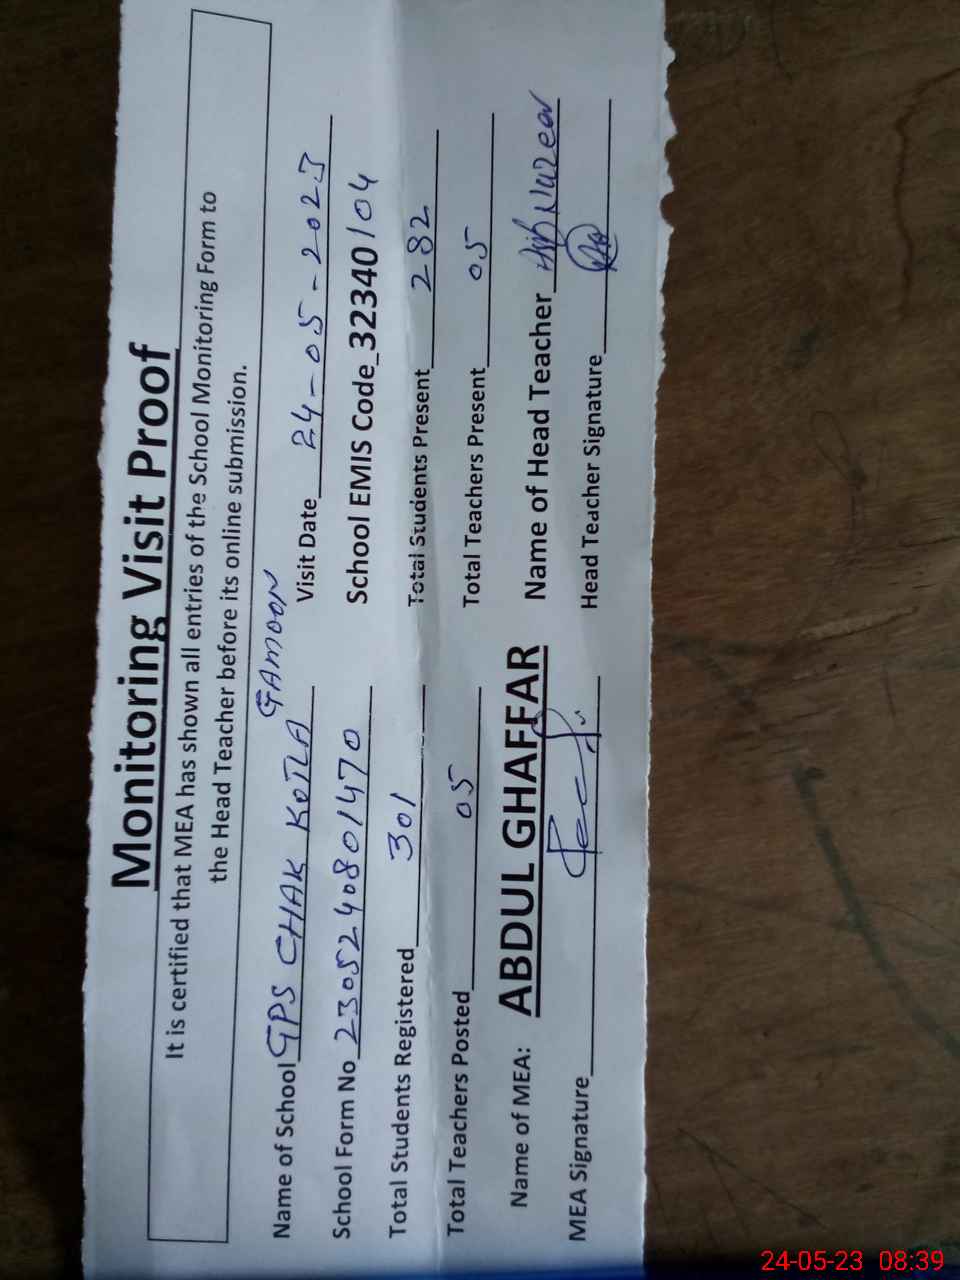 Monitoring Visit Proof
It is certified that MEA has shown all entries of the School Monitoring Form to
the Head Teacher before its online submission.
Name of School GPS CHAK KOTLA GAMOON Visit Date 24-05-2023
School Form No 230524080 1470 School EMIS Code_32340104
Total Students Registered 301 Total Students Present 282
Total Teachers Posted 05 Total Teachers Present 05
Name of MEA: ABDUL GHAFFAR Name of Head Teacher
MEA Signature Head Teacher Signature
24-05-23 08:39